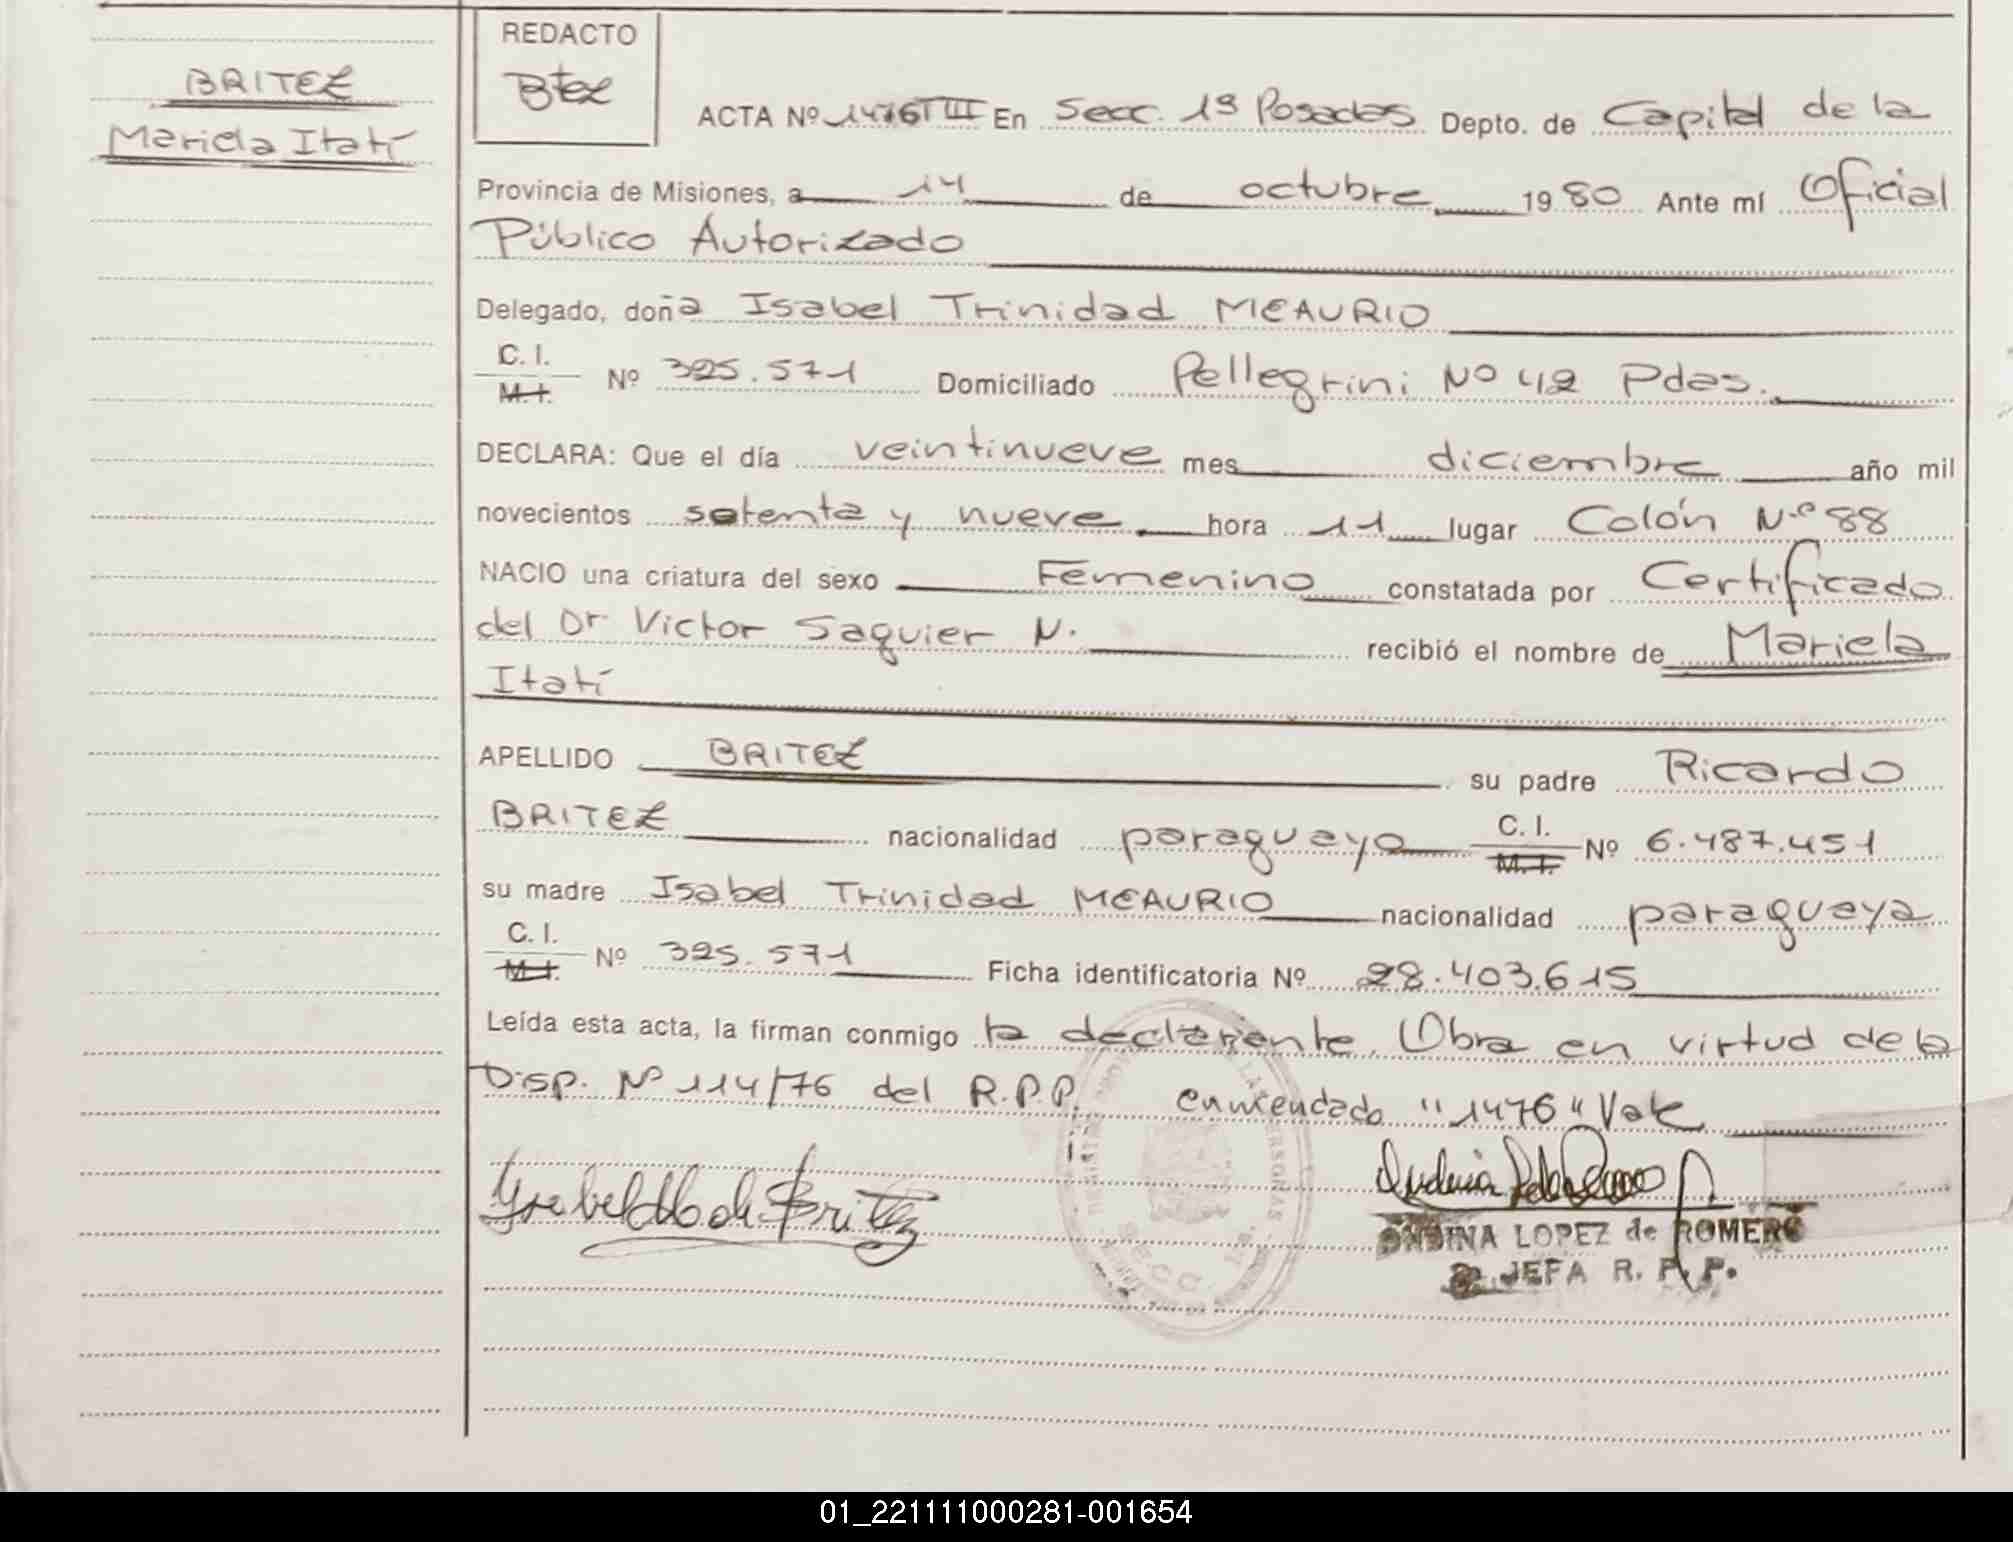 BRITEZ
Mariela Itatí
REDACTO
Btez
ACTA Nº 1476 T III En Secc. 1ª Posadas Depto. de Capital de la
Provincia de Misiones, a 14 de octubre 1980 Ante mí Oficial
Público Autorizado
Delegado, doña Isabel Trinidad MEAURIO
C. I.
M. I.
Nº 325.571 Domiciliado Pellegrini Nº 42 Pdas.
DECLARA: Que el día veintinueve mes diciembre año mil
novecientos setenta y nueve hora 11 lugar Colón N.º 88
NACIO una criatura del sexo Femenino constatada por Certificado
del Dr. Victor Saguier N. recibió el nombre de Mariela
Itatí
APELLIDO BRITEZ su padre Ricardo
BRITEZ nacionalidad paraguaya C. I. M. I. Nº 6.487.451
su madre Isabel Trinidad MEAURIO nacionalidad paraguaya
C. I.
M. I.
Nº 325.571 Ficha identificatoria Nº 28.403.615
Leída esta acta, la firman conmigo la declarante. Obra en virtud de la
Disp. Nº 114/76 del R.P.P. enmendado "1476" Vale
Isabel M de Britez
ONDINA LOPEZ de ROMERO
JEFA R. P. P.
Secc. 1a.
01_221111000281-001654